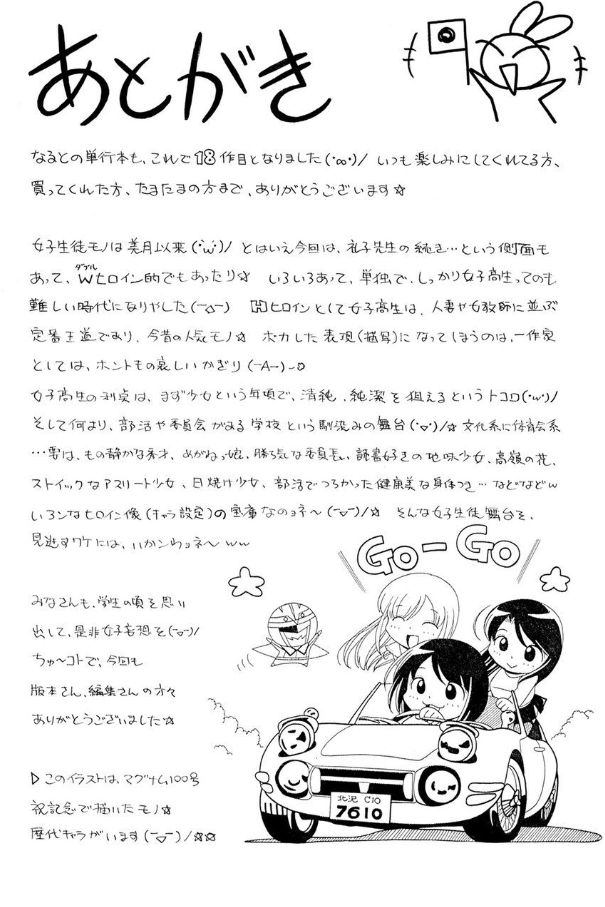 あとがき
なるとの単行本も、これで18作目となりました(･∞･)/ いつも楽しみにしてくれてる方、
買ってくれた方、たまたまの方まで、ありがとうございます☆
女子生徒モノは美月以来(･w･)/ とはいえ今回は、礼子先生の続き…という側面も
あって、Wヒロイン的でもあったり☆ いろいろあって、単独で、しっかり女子高生ってのも
難しい時代になりやした(ーΔー) Hヒロインとして女子高生は、人妻や女教師に並ぶ
定番王道であり、今昔の人気モノ☆ ボカした表現(描写)になってしまうのは、一作家
としては、ホントもの哀しいかぎり(ーAー)
女子高生の利点は、まず少女という年頃で、清純、純潔を狙えるというトコロ(･w･)/
そして何より、部活や委員会がある学校という馴染みの舞台(･▽･)/☆ 文化系に体育会系
…更は、もの静かな秀才、めがねっ娘、勝ち気な委員長、読書好きの地味少女、高嶺の花、
ストイックなアスリート少女、日焼け少女、部活でつちかった健康美な身体つき…などなどw
いろンなヒロイン像(キャラ設定)の宝庫なのョネ〜(ー▽ー)/☆ そんな女子生徒舞台を、
見逃すワケには、いかんわョネ〜ww
GO-GO
みなさんも、学生の頃を思い
出して、是非女子妄想を(ー▽ー)/
ちゅ〜コトで、今回も
版本さん、編集さんの方々
ありがとうございました☆
▷このイラストは、マグナム100号
祝記念で描いたモノ☆
歴代キャラがいます(ー▽ー)/☆☆
北沢 C10
7610